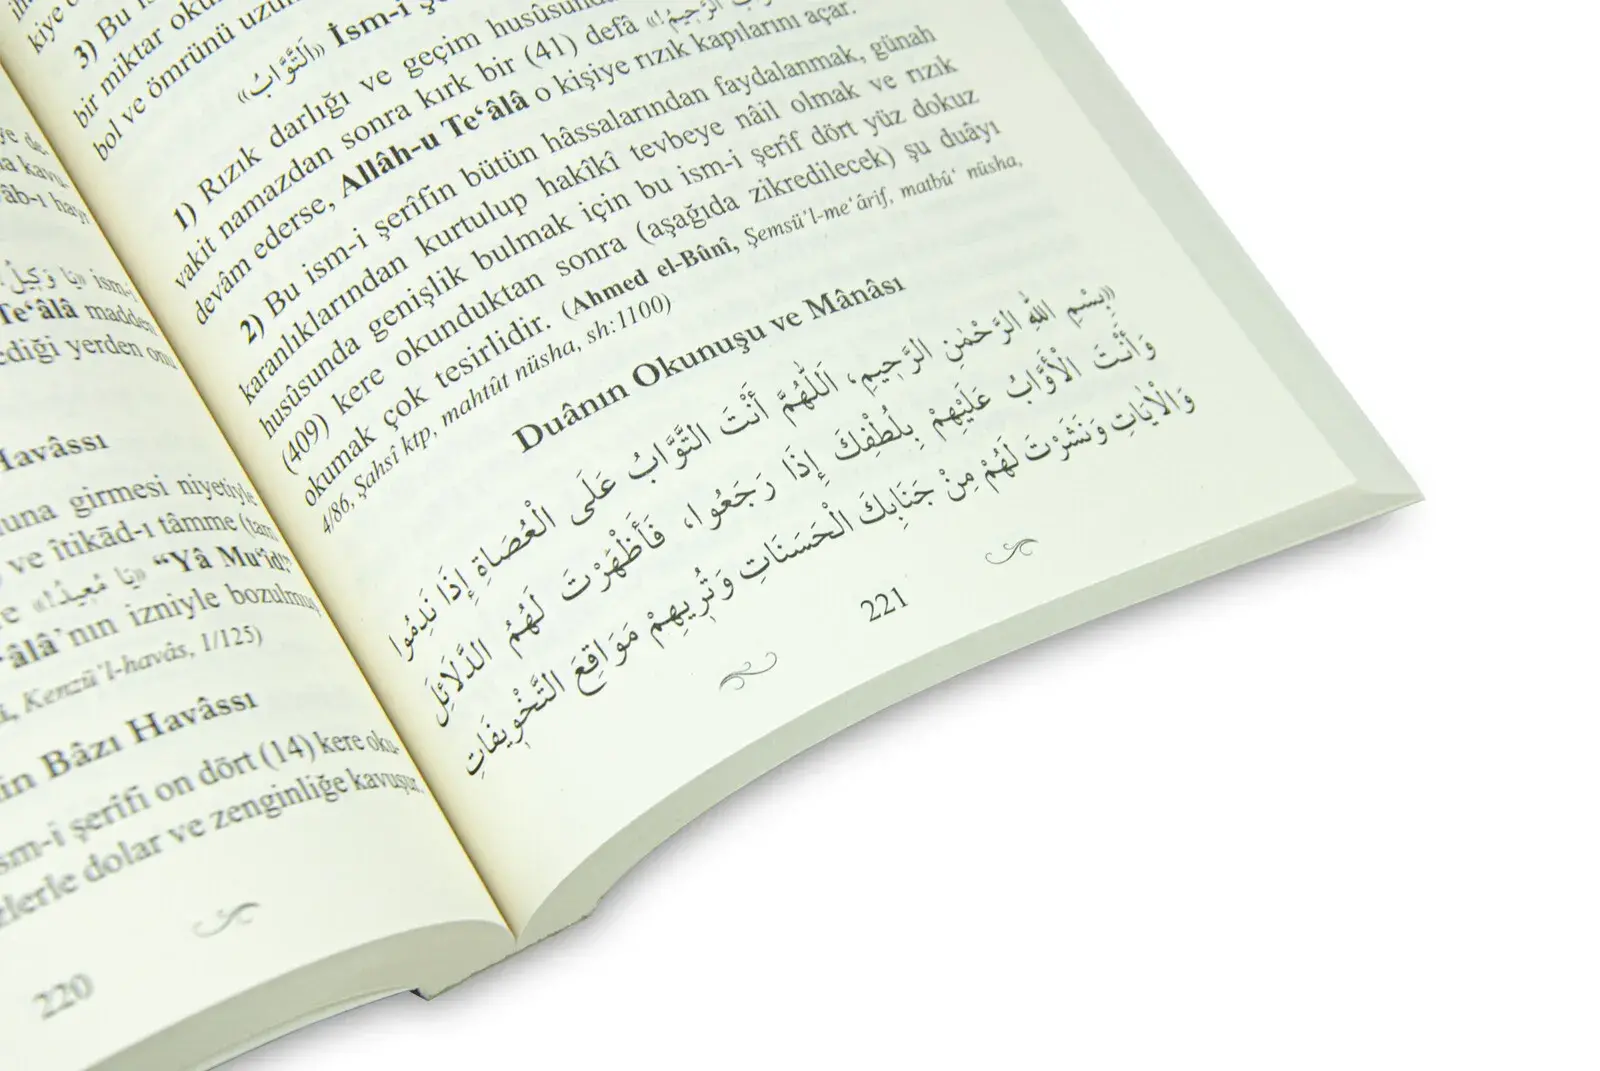 kiye
3) Bu
bir miktar
bol ve ömrünü
«اَلتَّوَّابُ» İsm-i
1) Rızık darlığı ve geçim husûsunda
vakit namazdan sonra kırk bir (41) defâ
devâm ederse, Allâh-u Te‘âlâ o kişiye rızık kapılarını açar.
2) Bu ism-i şerîfin bütün hâssalarından faydalanmak, günah
karanlıklarından kurtulup hakîkî tevbeye nâil olmak ve rızık
husûsunda genişlik bulmak için bu ism-i şerîf dört yüz dokuz
(409) kere okunduktan sonra (aşağıda zikredilecek) şu duâyı
okumak çok tesirlidir. (Ahmed el-Bûnî, Şemsü’l-me‘ârif, matbû‘ nüsha,
4/86, Şahsî ktp, mahtût nüsha, sh:1100)
Duânın Okunuşu ve Mânâsı
«بِسْمِ اللهِ الرَّحْمٰنِ الرَّحِيمِ، اَللّٰهُمَّ أَنْتَ التَّوَّابُ عَلَى الْعُصَاةِ إِذَا نَدِمُوا
وَأَنْتَ الْأَوَّابُ عَلَيْهِمْ بِلُطْفِكَ إِذَا رَجَعُوا، فَأَظْهَرْتَ لَهُمُ الدَّلَائِلَ
وَالْاٰيَاتِ وَنَشَرْتَ لَهُمْ مِنْ جَنَابِكَ الْحَسَنَاتِ وَتُرِيهِمْ مَوَاقِعَ التَّخْوِيفَاتِ
221
«يَا وَكِيلُ ism-i
Te‘âlâ madden
ediği yerden onu
Havâssı
una girmesi niyetiyle
ve îtikād-ı tâmme (tam
«يَا مُعِيدُ!» “Yâ Mu‘îd!”
‘âlâ’nın izniyle bozulmuş
Kenzü’l-havâs, 1/125)
in Bâzı Havâssı
ism-i şerîfi on dört (14) kere oku-
zlerle dolar ve zenginliğe kavuşur.
220